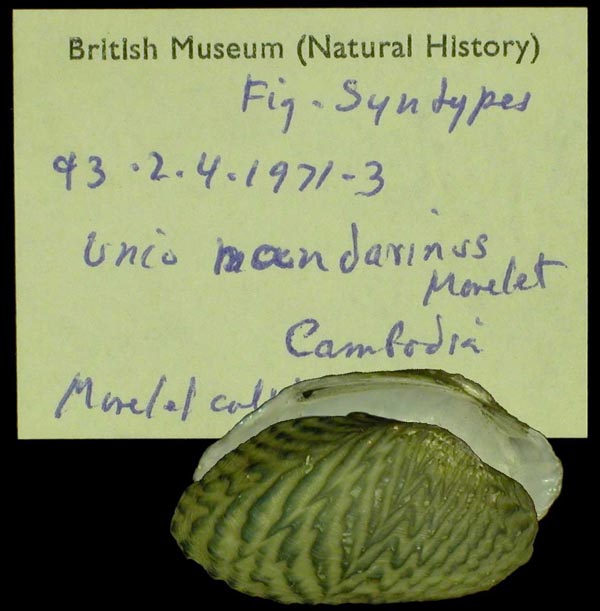 British Museum (Natural History)
Fig. Syntypes
93.2.4.1971-3
Unio mandarinus
Morelet
Cambodia
Morelet